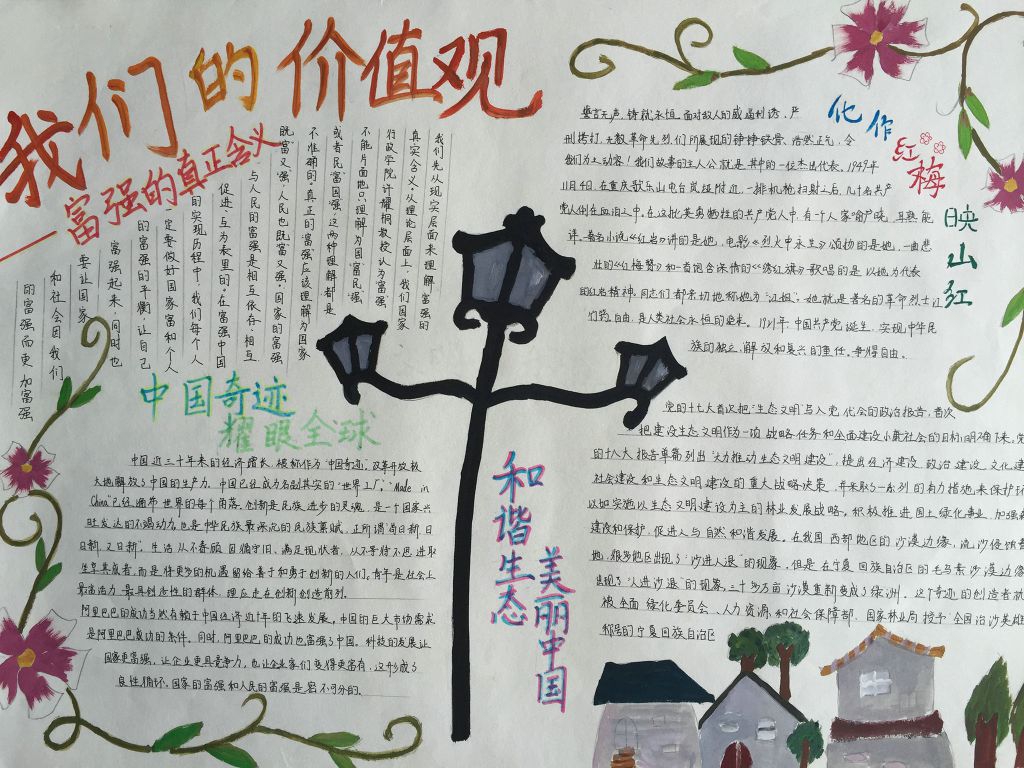 我们的价值观
——富强的真正含义
我们先从现实层面来理解富强的
真实含义,从理论层面上,我们国家
行政学院许耀桐教授认为富强
不能片面地只理解为国富民强
或者民富国强,这两种理解都是
不准确的。真正的富强应该理解为国家
既富又强,人民也既富又强。国家的富强
与人民的富强是相互依存、相互
促进、互为表里的。在富强中国
的实现历程中,我们每个人
一定要做好国家富和个人
的富强的平衡,让自己
富强起来,同时也
要让国家
和社会因我们
的富强而更加富强
中国奇迹
耀眼全球
中国近三十年来的经济增长,被称作为“中国奇迹”,改革开放极
大地解放了中国的生产力,中国已经成为名副其实的“世界工厂”,“Made in
China”已经遍布世界的每个角落,创新是民族进步的灵魂,是一个国家兴
旺发达的不竭动力,也是中华民族最深沉的民族禀赋,正所谓苟日新,日
日新,又日新”。生活从不眷顾因循守旧、满足现状者,从不等待不思进取
坐享其成者,而是将更多的机遇留给善于和勇于创新的人们。青年是社会上
最富活力、最具创造性的群体,理应走在创新创造前列。
阿里巴巴的成功当然有赖于中国经济近十年的飞速发展,中国的巨大市场需求
是阿里巴巴成功的条件。同时,阿里巴巴的成功也富强了中国。科技的发展让
国家更富强,让企业更具竞争力,也让企业家们变得更富有,这形成了
良性循环。国家的富强和人民的富强是密不可分的。
和谐生态
美丽中国
化作
红梅
映山红
誓言无声,铸就永恒。面对敌人的威逼利诱、严
刑拷打,无数革命先烈们所展现的铮铮铁骨、浩然正气,令
我们为之动容!我们故事的主人公就是其中的一位杰出代表。1949年
11月4日,在重庆歌乐山电台岚垭附近,一排机枪扫射之后,几十名共产
党人倒在血泊之中。在这批英勇牺牲的共产党人中,有个人家喻户晓、耳熟能
详。著名小说《红岩》讲的是她,电影《烈火中永生》颂扬的是她,一曲悲
壮的《红梅赞》和一首饱含深情的《绣红旗》歌唱的是以她为代表
的红岩精神,同志们都亲切地称她为“江姐”。她就是著名的革命烈士江
竹筠。自由,是人类社会永恒的追求。1921年,中国共产党诞生,实现中华民
族的独立、解放和复兴的重任。争得自由。
党的十七大首次把“生态文明”写入党代会的政治报告,首次
把建设生态文明作为一项战略任务和全面建设小康社会的目标明确下来。党
的十八大报告单篇列出“大力推动生态文明建设”,提出经济建设、政治建设、文化建
社会建设和生态文明建设的重大战略决策,并采取了一系列的有力措施来保护环
以如实施以生态文明建设为主的林业发展战略。积极推进国土绿化事业,加强森
建设和保护,促进人与自然和谐发展。在我国西部地区的沙漠边缘,流沙侵蚀着
地,很多地区出现了“沙进人退”的现象,但是在宁夏回族自治区的毛乌素沙漠边缘
出现了“人进沙退”的现象,三十多万亩沙漠重新变成了绿洲。这个奇迹的创造者就
被全面绿化委员会、人力资源和社会保障部、国家林业局授予“全国治沙英雄
称号的宁夏回族自治区